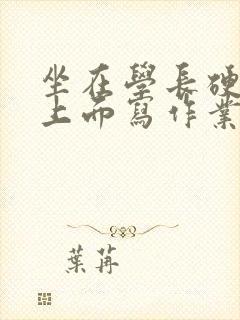 坐在學長硬
上而寫作業
葉苒